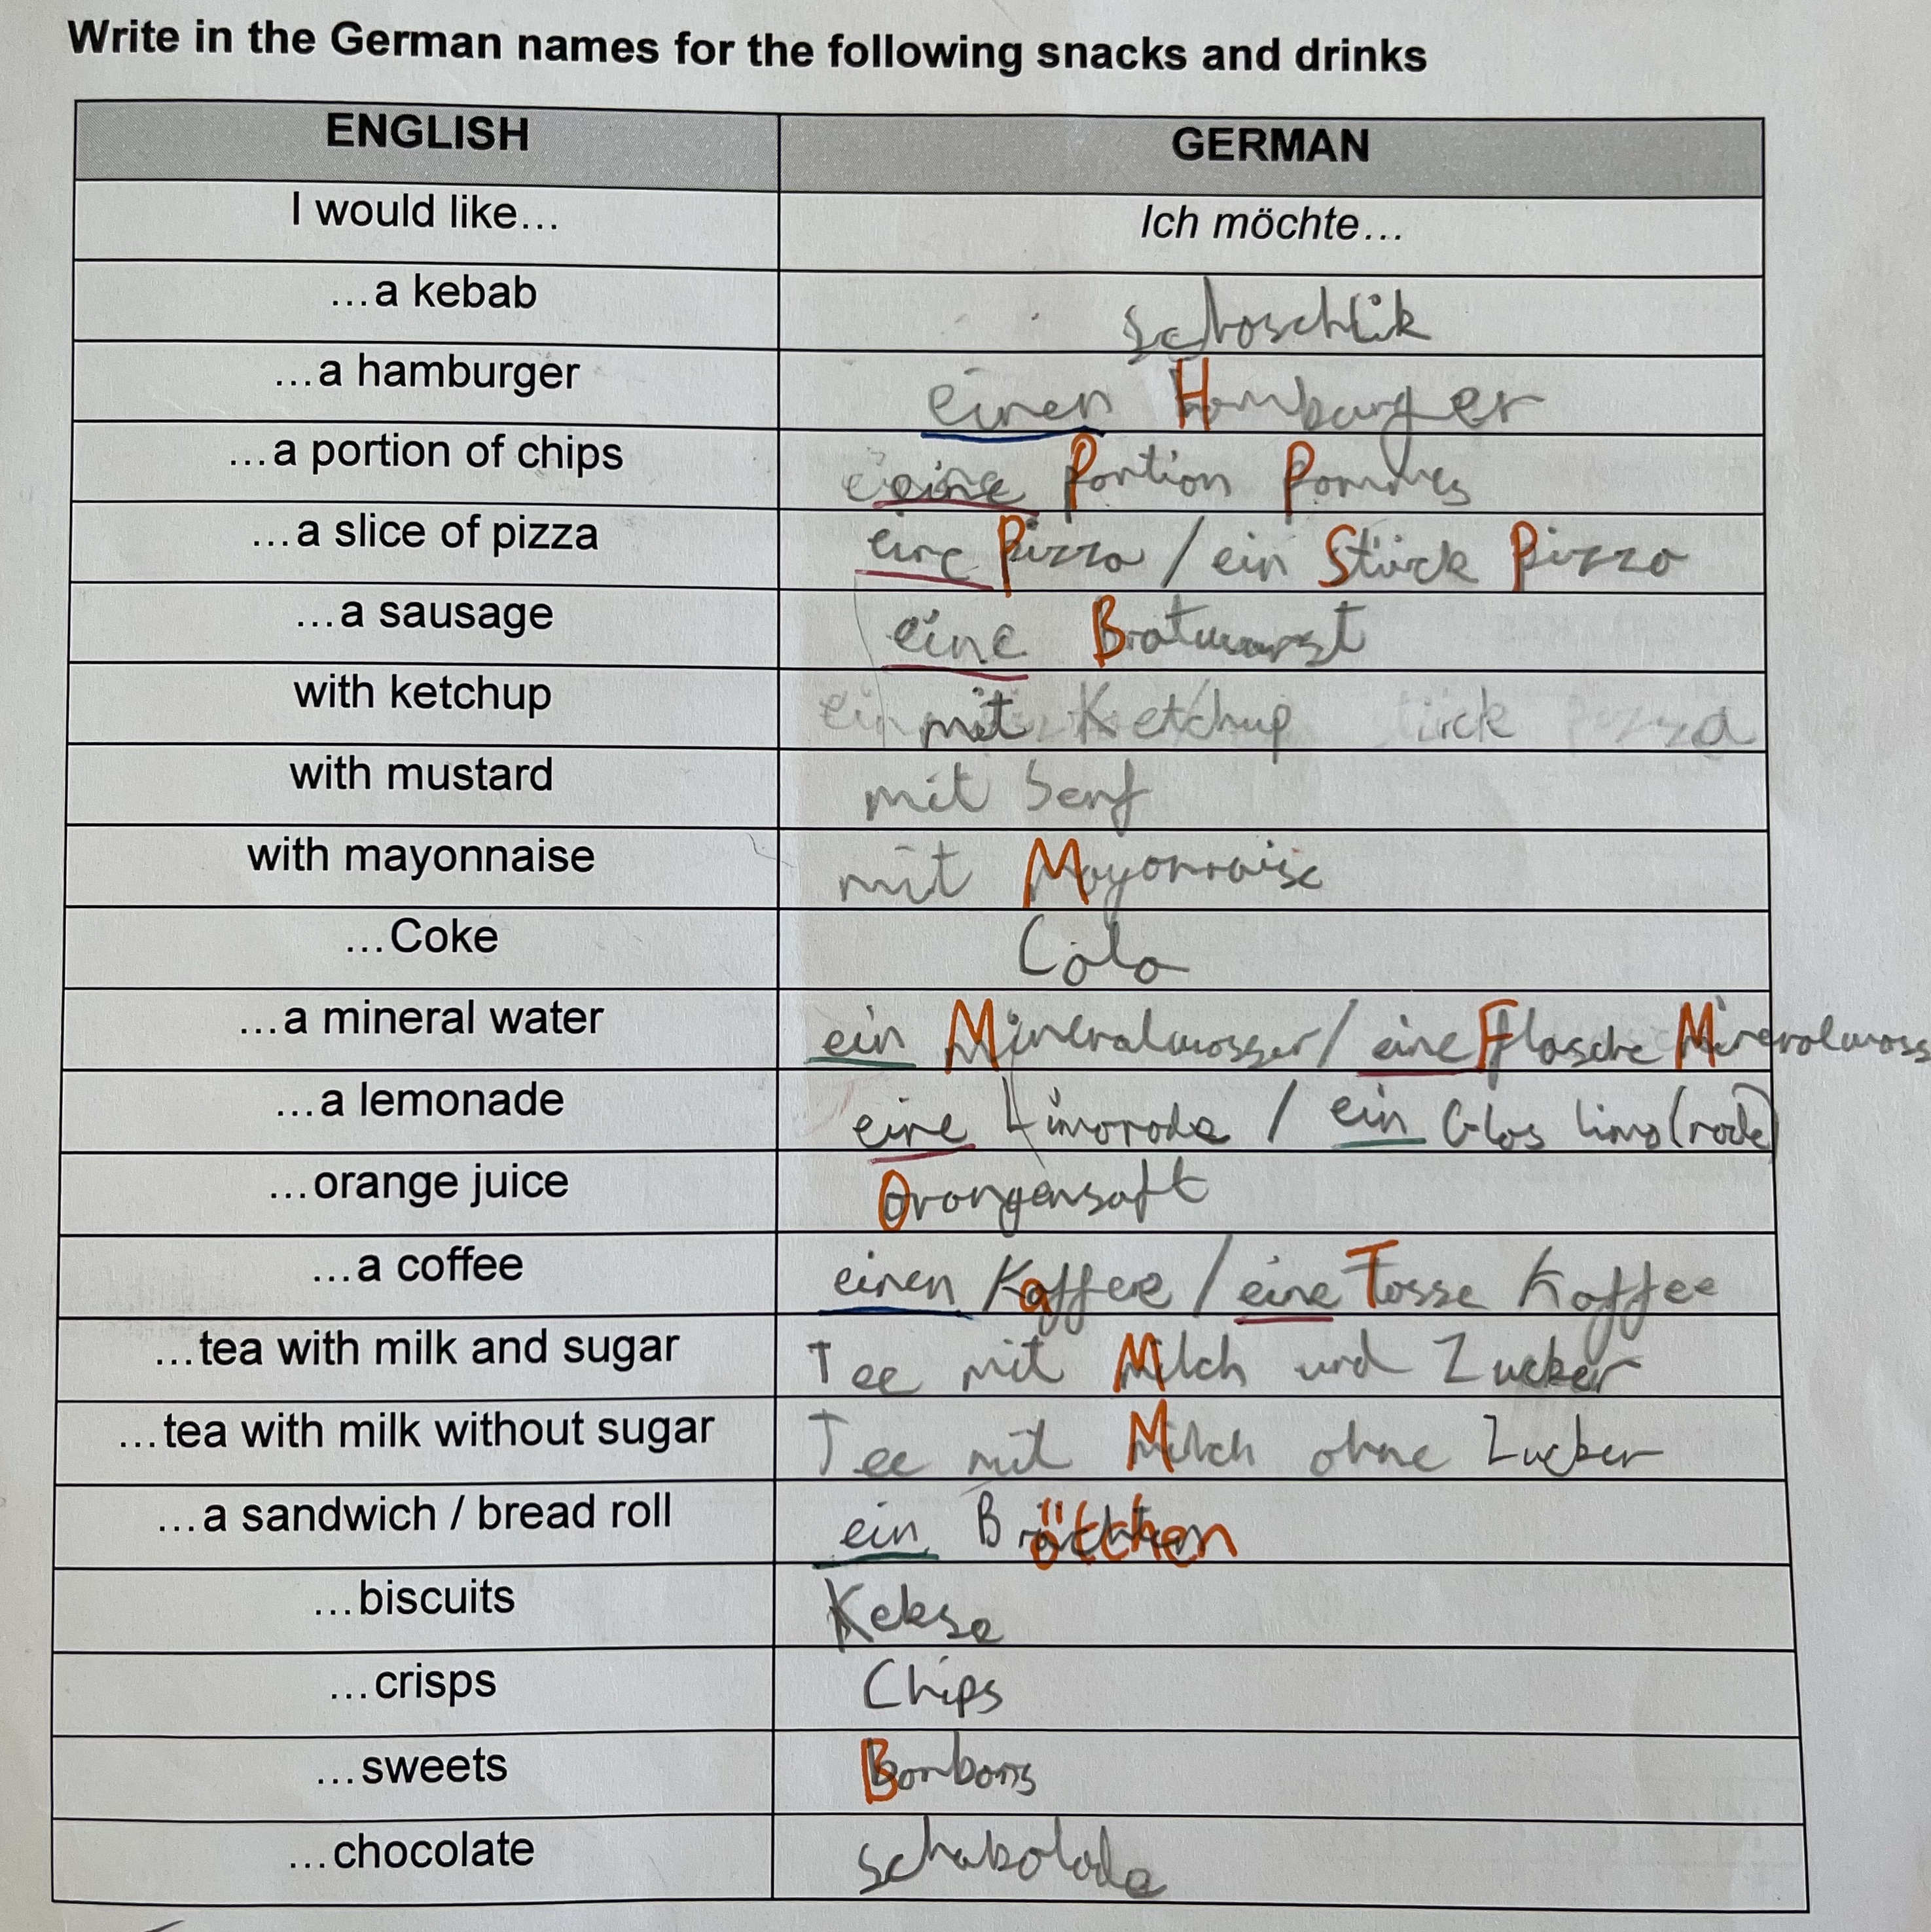 Write in the German names for the following snacks and drinks
ENGLISH GERMAN
I would like… Ich möchte…
…a kebab Schaschlik
…a hamburger einen Hamburger
…a portion of chips eine Portion Pommes
…a slice of pizza eine Pizza / ein Stück Pizza
…a sausage eine Bratwurst
with ketchup mit Ketchup
with mustard mit Senf
with mayonnaise mit Mayonnaise
…Coke Cola
…a mineral water ein Mineralwasser / eine Flasche Mineralwass
…a lemonade eine Limonade / ein Glas Limo(nade)
…orange juice Orangensaft
…a coffee einen Kaffee / eine Tasse Kaffee
…tea with milk and sugar Tee mit Milch und Zucker
…tea with milk without sugar Tee mit Milch ohne Zucker
…a sandwich / bread roll ein Bröttchen
…biscuits Kekse
…crisps Chips
…sweets Bonbons
…chocolate Schakolade